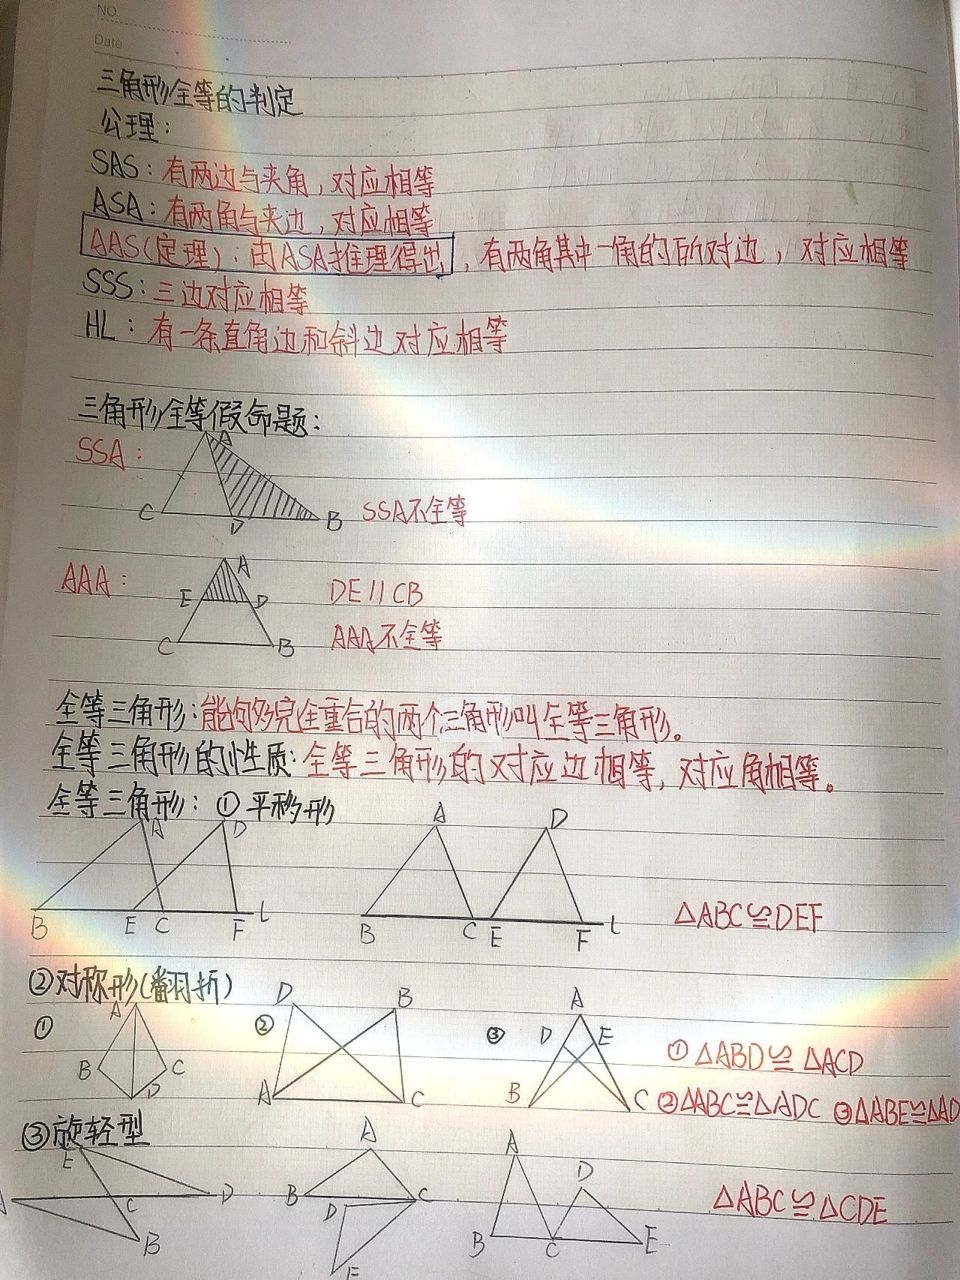 NO.
Date
三角形全等的判定
公理:
SAS:有两边与夹角,对应相等
ASA:有两角与夹边,对应相等
AAS(定理):由ASA推理得出,有两角其中一角的所对边,对应相等
SSS:三边对应相等
HL:有一条直角边和斜边对应相等
三角形全等假命题:
SSA:
A
C D B SSA不全等
AAA:
A
E D DE//CB
C B AAA不全等
全等三角形:能够完全重合的两个三角形叫全等三角形。
全等三角形的性质:全等三角形的对应边相等,对应角相等。
全等三角形:①平移形
A D A D
B E C F l B C E F l △ABC≌DEF
②对称形(翻折)
① A B C D
② D B A C
③ A D E B C
①△ABD≌△ACD
②△ABC≌△ADC ③△ABE≌△AD
③旋轻型
E C D B
A B C D E
A D B C E
△ABC≌△CDE